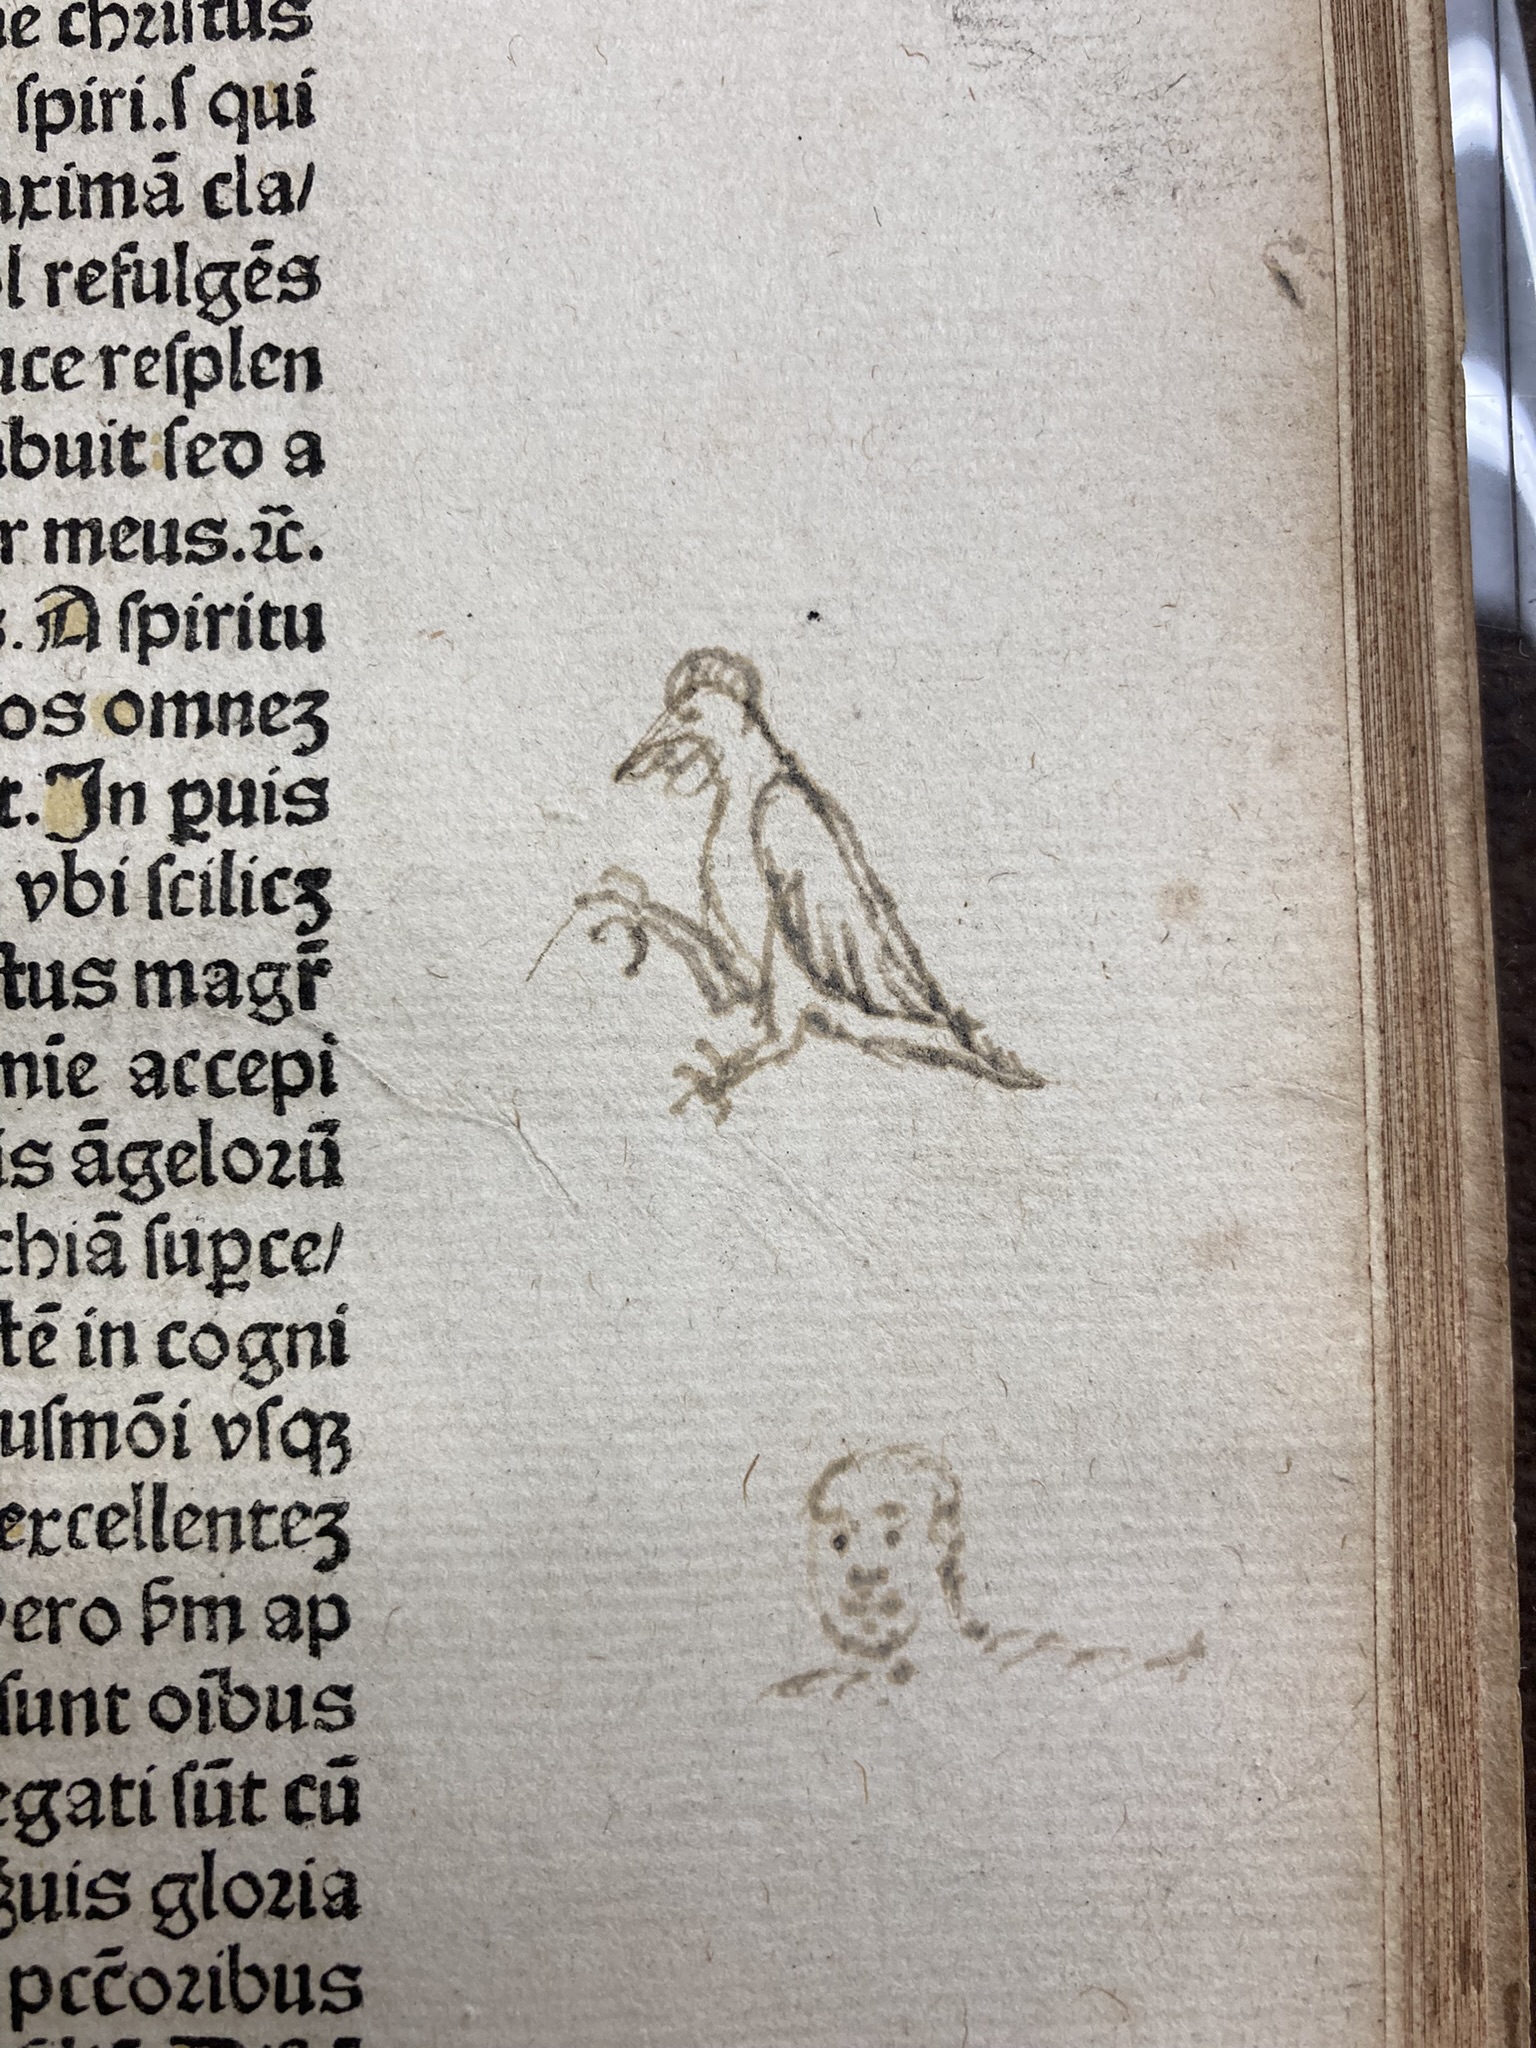 ne chriſtus
ſpiri.ſ qui
aximā cla/
ol refulgēs
uce reſplen
abuit ſed a
r meus.ꝛc̄.
s. A ſpiritu
os omneʒ
t. In ꝑuis
vbi ſcilicʒ
ſtus magr̄
nie accepi
is āgeloꝛū
chiā ſuꝑce/
tē in cogni
uſmōi vſqʒ
excellenteʒ
vero hm̄ ap
ſunt oībus
egati ſūt cū
ʒuis gloꝛia
pcc̄oꝛibus